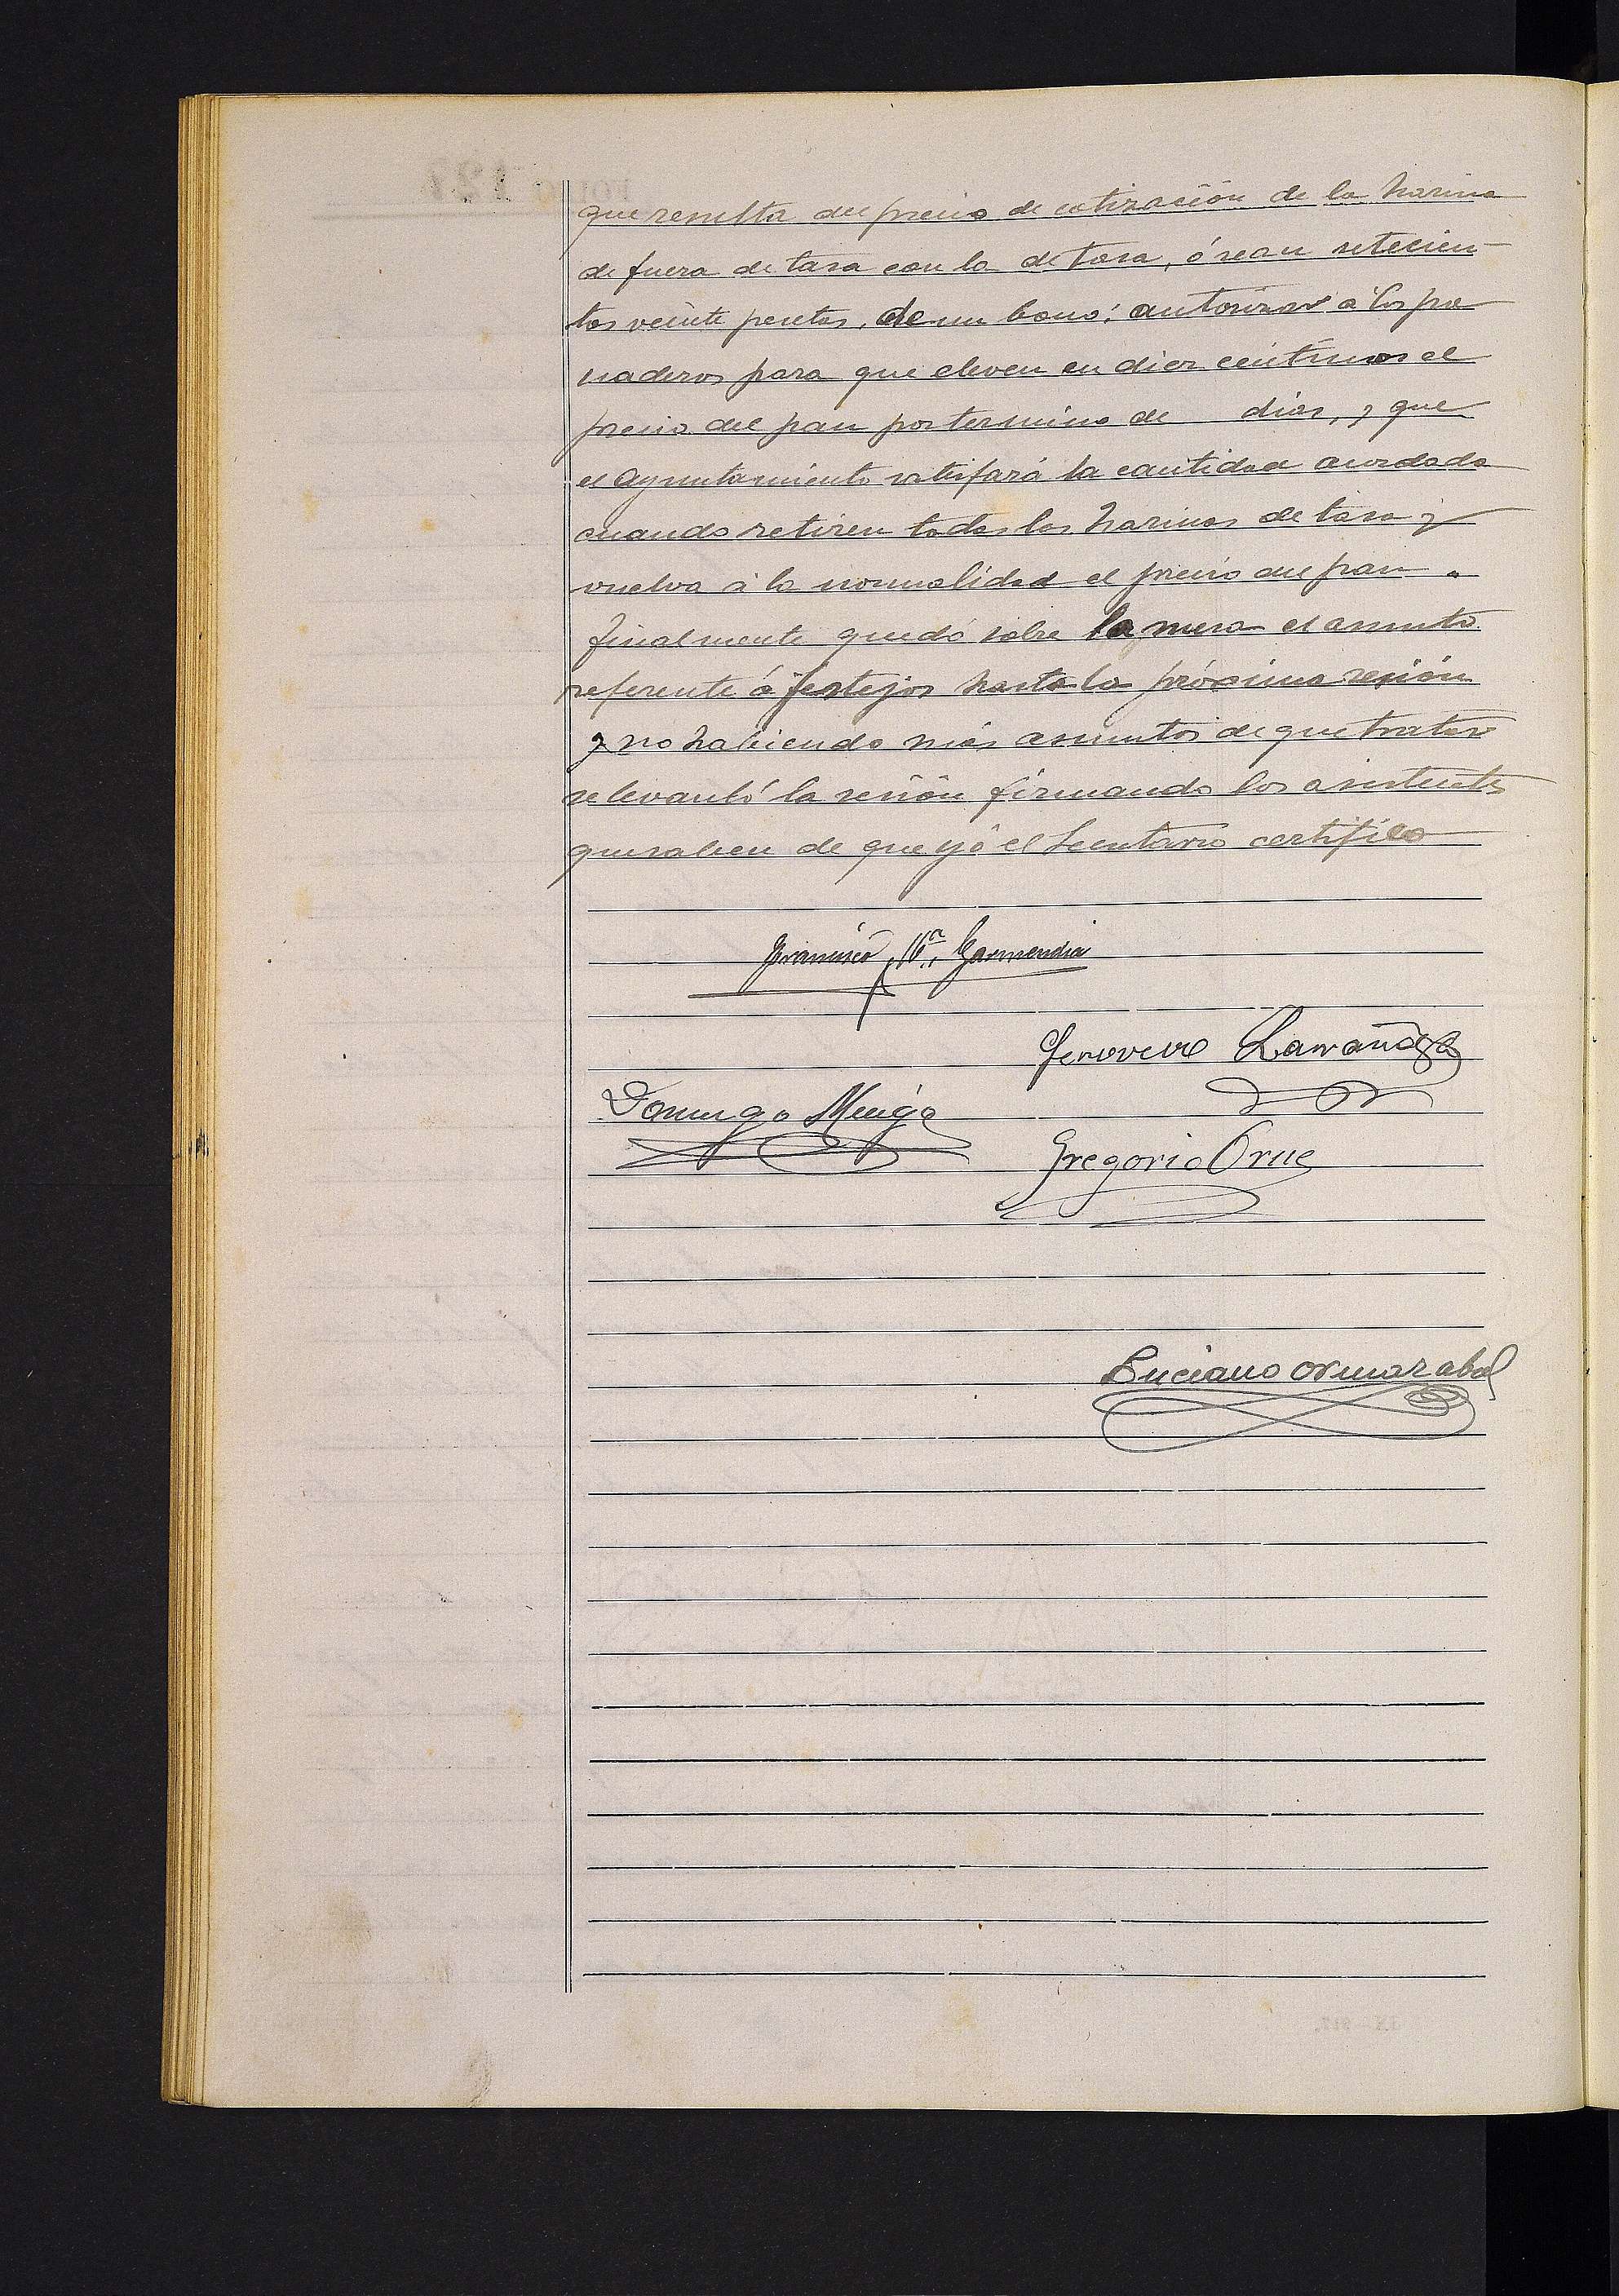 que resulta del precio de cotización de la harina
de fuera de tasa con la de tasa, ó sean setecien-
tas veinte pesetas, de un bono: autorizar á los pa-
naderos para que eleven en diez céntimos el
precio del pan por termino de días, y que
el Ayuntamiento satisfará la cantidad acordada
cuando retiren todas las harinas de tasa y
vuelva á la normalidad el precio del pan.
Finalmente quedó sobre la mesa el asunto
referente á festejos hasta la próxima sesión
y no habiendo más asuntos de que tratar
se levantó la sesión firmando los asistentes
que saben de que yó el Secretario certifico
Francisco Mª Garmendia
Larrañaga
Domingo
Gregorio Orue
Luciano Ormazabal